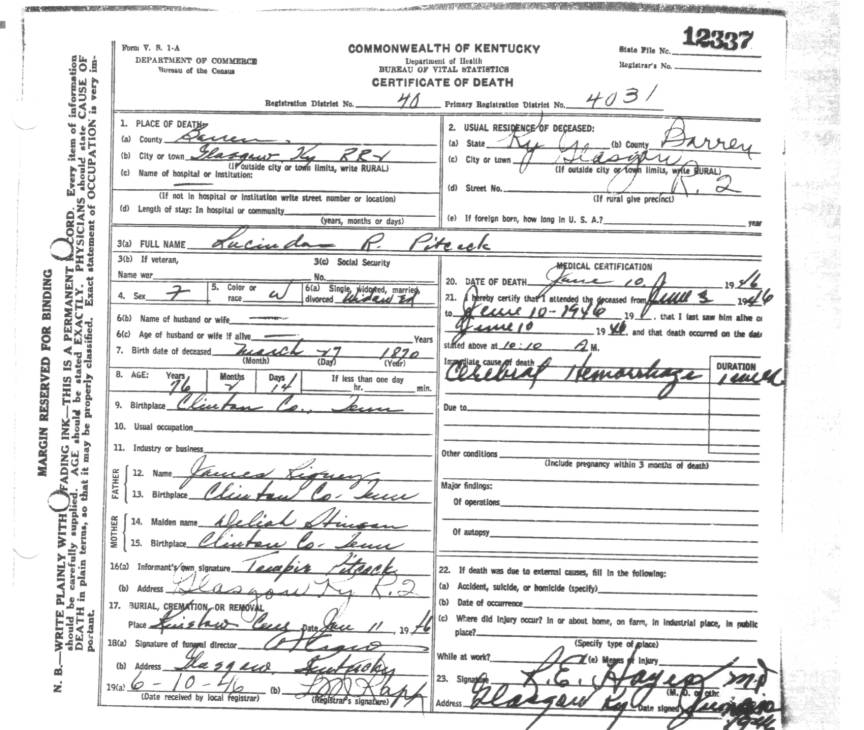 12337
Form V. S. 1-A
DEPARTMENT OF COMMERCE
Bureau of the Census
COMMONWEALTH OF KENTUCKY
Department of Health
BUREAU OF VITAL STATISTICS
CERTIFICATE OF DEATH
State File No.
Registrar's No.
Registration District No. 40 Primary Registration District No. 4031
MARGIN RESERVED FOR BINDING
N. B.—WRITE PLAINLY WITH FADING INK—THIS IS A PERMANENT CORD. Every item of information
should be carefully supplied. AGE should be stated EXACTLY. PHYSICIANS should state CAUSE OF
DEATH in plain terms, so that it may be properly classified. Exact statement of OCCUPATION is very im-
portant.
1. PLACE OF DEATH
(a) County Barren
(b) City or town Glasgow Ky RR
(If outside city or town limits, write RURAL)
(c) Name of hospital or Institution:
(If not in hospital or institution write street number or location)
(d) Length of stay: In hospital or community
(years, months or days)
2. USUAL RESIDENCE OF DECEASED:
(a) State Ky (b) County Barren
(c) City or town Glasgow
(If outside city or town limits, write RURAL)
(d) Street No. R. 2
(If rural give precinct)
(e) If foreign born, how long in U. S. A.? year
3(a) FULL NAME Lucinda R. Pitcock
3(b) If veteran,
Name war
3(c) Social Security
No.
4. Sex F
5. Color or
race W
6(a) Single, widowed, married,
divorced Widowed
6(b) Name of husband or wife
6(c) Age of husband or wife if alive Years
7. Birth date of deceased March 27 1870
(Month) (Day) (Year)
8. AGE: Years 76 Months 2 Days 14 If less than one day
hr. min.
9. Birthplace Clinton Co., Tenn
10. Usual occupation
11. Industry or business
FATHER
12. Name James
13. Birthplace Clinton Co- Tenn
MOTHER
14. Maiden name Deliah Stinson
15. Birthplace Clinton Co- Tenn
16(a) Informant's own signature Pitcock
(b) Address Glasgow Ky R.2
17. BURIAL, CREMATION, OR REMOVAL
Place Date 11, 1946
18(a) Signature of funeral director
(b) Address Glasgow, Kentucky
19(a) 6-10-46 (b) Rapp
(Date received by local registrar) (Registrar's signature)
MEDICAL CERTIFICATION
20. DATE OF DEATH June 10, 1946
21. I hereby certify that I attended the deceased from June 3 1946
to June 10-1946 19 , that I last saw him alive on
June 10 1946 and that death occurred on the date
stated above at 10:10 A M.
Immediate cause of death
Cerebral Hemorrhage
DURATION
1 week
Due to
Other conditions
(Include pregnancy within 3 months of death)
Major findings:
Of operations
Of autopsy
22. If death was due to external causes, fill in the following:
(a) Accident, suicide, or homicide (specify)
(b) Date of occurrence
(c) Where did injury occur? In or about home, on farm, in industrial place, in public
place?
(Specify type of place)
While at work? (e) Means of Injury
23. Signature R.E. Hayes MD
(M. D. or other
Address Glasgow Ky Date signed June 10
1946